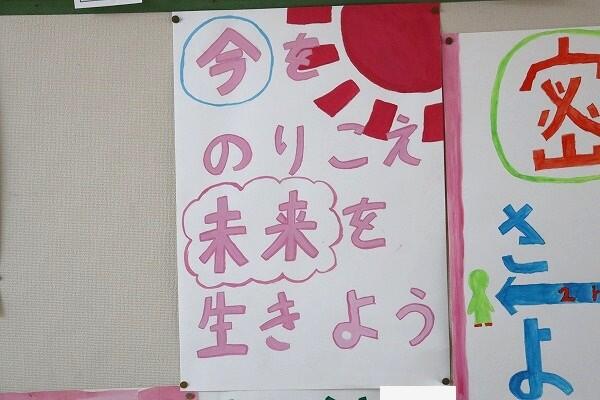 今を
のりこえ
未来を
生きよう
密
さ
よ
2